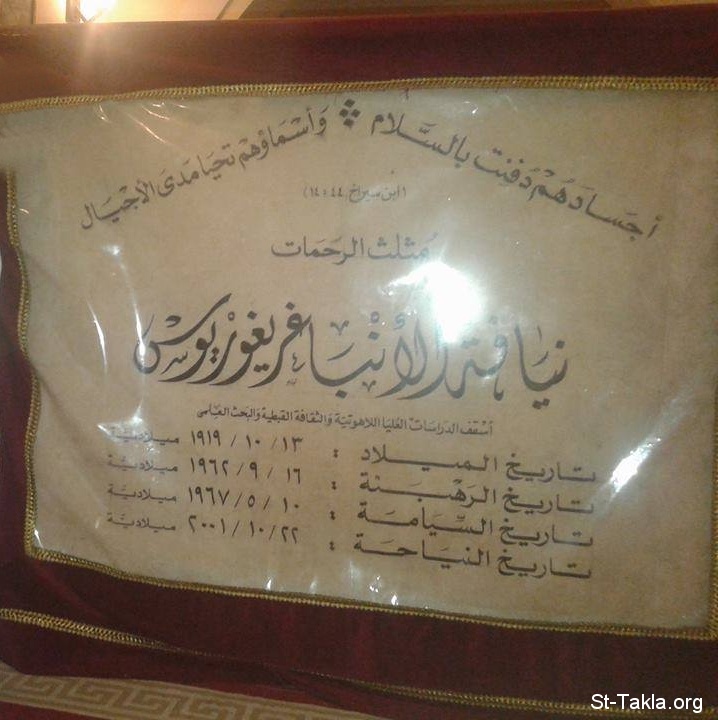 أجسَادهُمْ دُفنت بالسَّلام ❖ وَأسْمَاؤهُم تحيَا مدَى الأجْيَال
(ابن سيراخ ٤٤ : ١٤)
مُثلث الرحَمَات
نيَافة الأنبَا غريغوريوس
أسْقف الدراسَات العُليا اللاهوتيَة والثقافة القبطية والبَحث العِلمى
تاريخ الميلاد : ١٣ / ١٠ / ١٩١٩ ميلاديَّة
تاريخ الرَهْبَنة : ١٦ / ٩ / ١٩٦٢ ميلاديَّة
تاريخ السِّيَامَة : ١٠ / ٥ / ١٩٦٧ ميلاديَّة
تاريخ النيَاحَة : ٢٢ / ١٠ / ٢٠٠١ ميلاديَّة
St-Takla.org